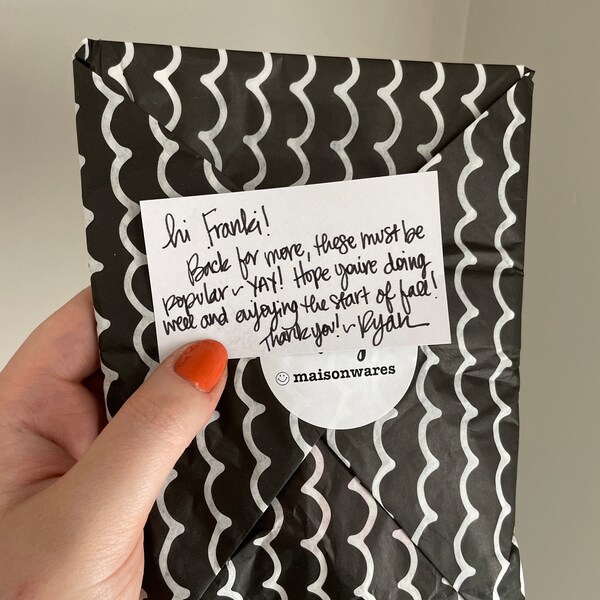 hi Franki!
Back for more, these must be
popular ~ YAY! Hope you're doing
well and enjoying the start of fall!
Thank you! ~ Ryah
maisonwares